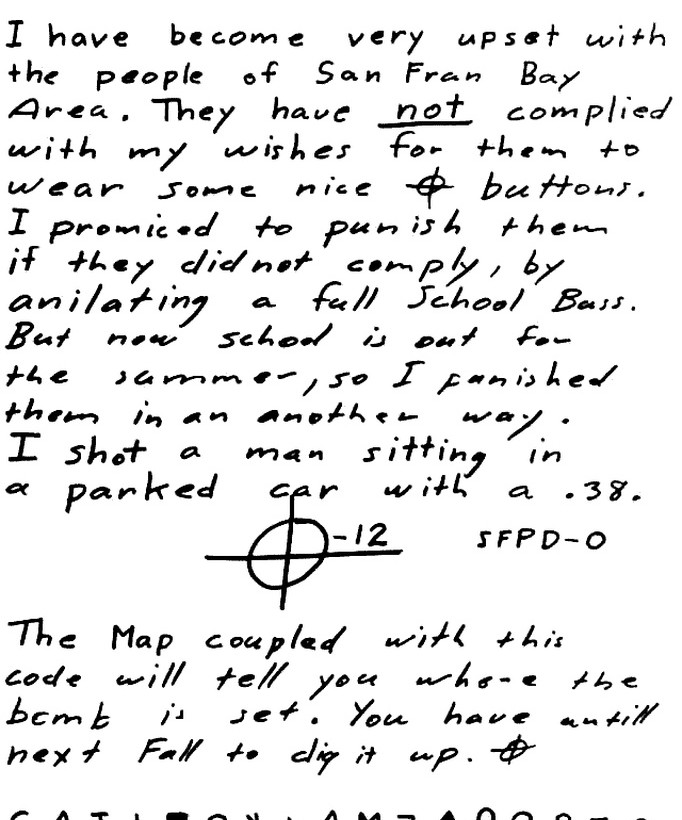 I have become very upset with
the people of San Fran Bay
Area. They have not complied
with my wishes for them to
wear some nice ⌖ buttons.
I promiced to punish them
if they did not comply, by
anilating a full School Buss.
But now school is out for
the summer, so I punished
them in an another way.
I shot a man sitting in
a parked car with a .38.
⌖-12 SFPD-0
The Map coupled with this
code will tell you where the
bomb is set. You have untill
next Fall to dig it up. ⌖